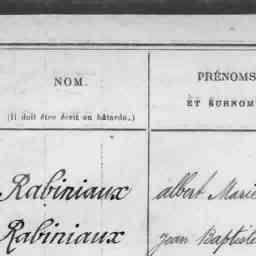 NOM.
(Il doit être écrit en bâtarde.)
PRÉNOMS
ET SURNOM
Rabiniaux albert Marie
Rabiniaux Jean Baptiste